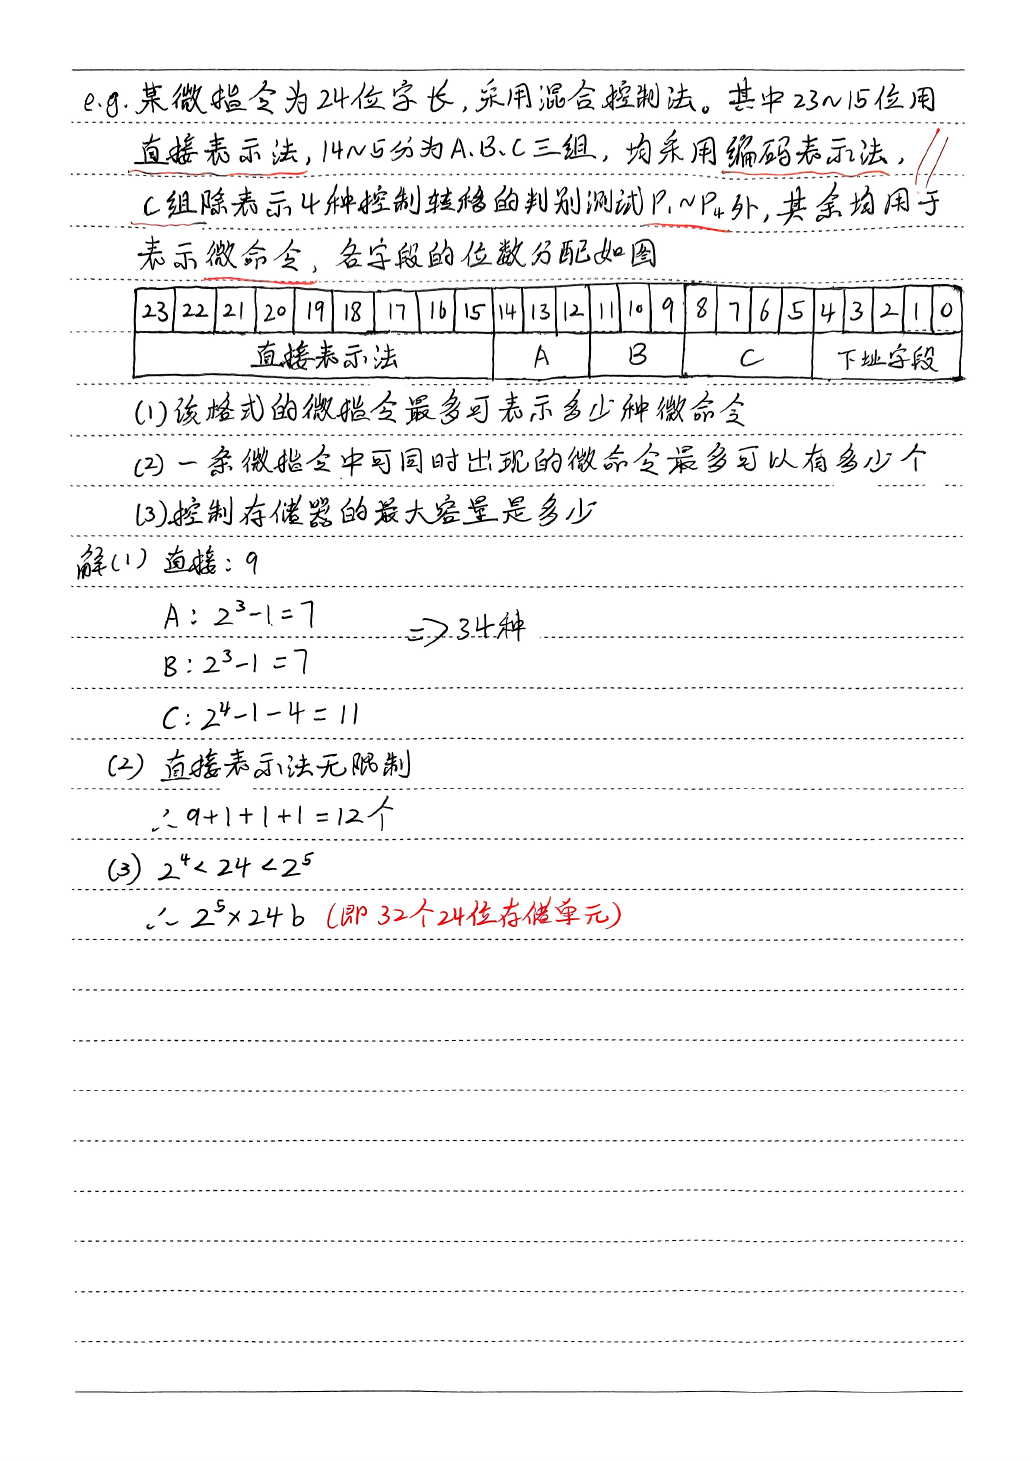 e.g. 某微指令为24位字长,采用混合控制法。其中23~15位用
直接表示法,14~5分为A.B.C三组,均采用编码表示法,
C组除表示4种控制转移的判别测试P₁~P₄外,其余均用于
表示微命令,各字段的位数分配如图
23 22 21 20 19 18 17 16 15 14 13 12 11 10 9 8 7 6 5 4 3 2 1 0
直接表示法 A B C 下址字段
(1)该格式的微指令最多可表示多少种微命令
(2)一条微指令中可同时出现的微命令最多可以有多少个
(3)控制存储器的最大容量是多少
解(1) 直接:9
A: 2³-1=7
=>34种
B:2³-1=7
C:2⁴-1-4=11
(2) 直接表示法无限制
∴9+1+1+1=12个
(3) 2⁴<24<2⁵
∴ 2⁵×24b (即32个24位存储单元)